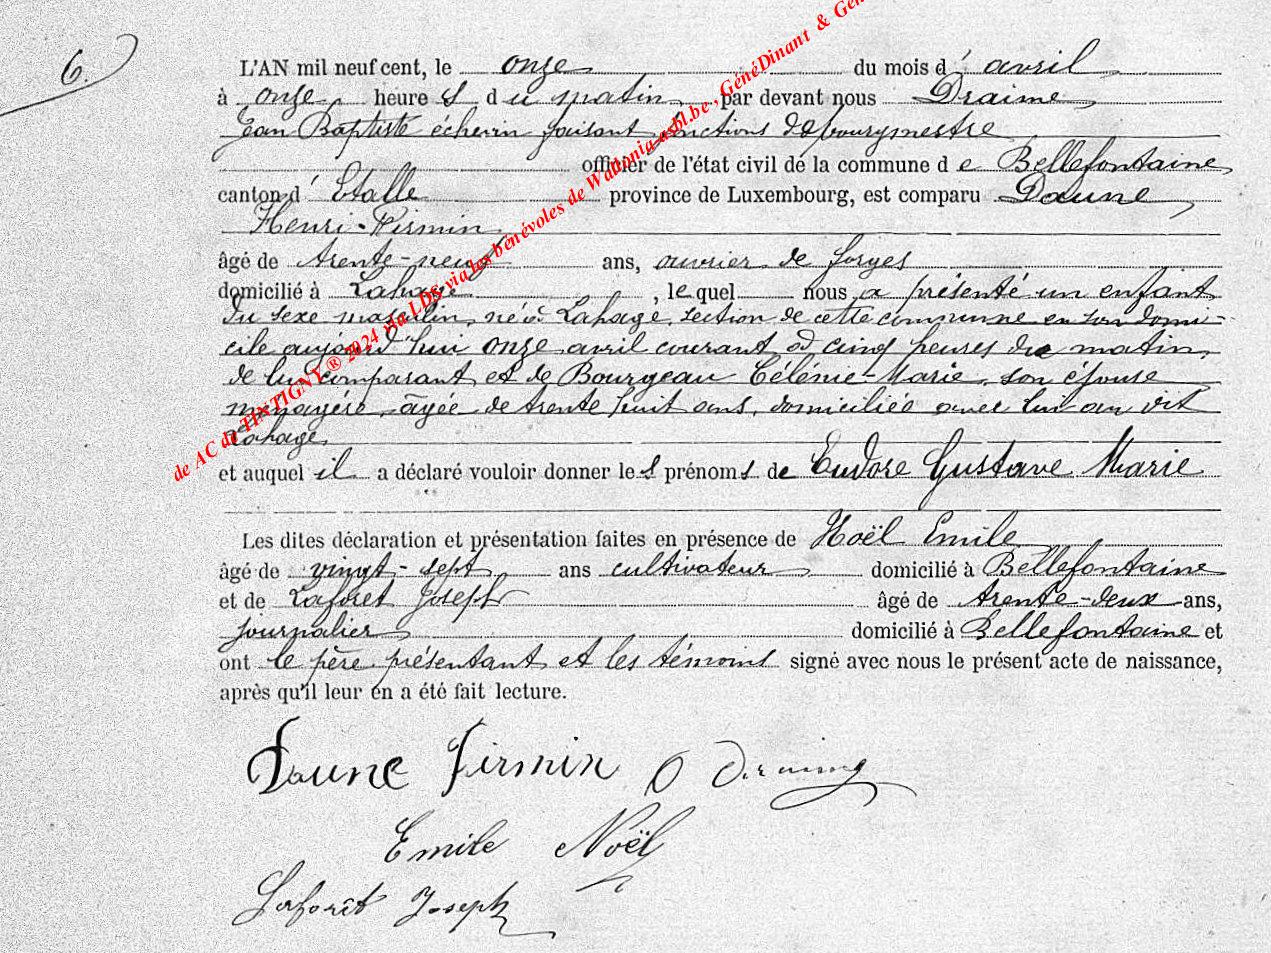 6.
L'AN mil neuf cent, le onze du mois d'avril
à onze heures du matin par devant nous Draime
Jean Baptiste échevin faisant fonctions de bourgmestre
officier de l'état civil de la commune de Bellefontaine
canton d'Etalle province de Luxembourg, est comparu Daune
Henri-Firmin
âgé de trente-neuf ans, ouvrier de forges
domicilié à Lahage, lequel nous a présenté un enfant
du sexe masculin, né à Lahage, section de cette commune en son domi-
cile aujourd'hui onze avril courant à cinq heures du matin,
de lui comparant et de Bourgeau Célénie-Marie, son épouse
ménagère, âgée de trente huit ans, domiciliée avec lui au dit
Lahage
et auquel il a déclaré vouloir donner les prénoms de Eudore Gustave Marie
Les dites déclaration et présentation faites en présence de Noël Emile
âgé de vingt-sept ans cultivateur domicilié à Bellefontaine
et de Laforêt Joseph âgé de trente-deux ans,
journalier domicilié à Bellefontaine et
ont le père présentant et les témoins signé avec nous le présent acte de naissance,
après qu'il leur en a été fait lecture.
Daune Firmin
Emile Noël
Laforêt Joseph
de AC de TINTIGNY ® 2024 via LDS via les bénévoles de Wallonia-asbl.be, GénéDinant &